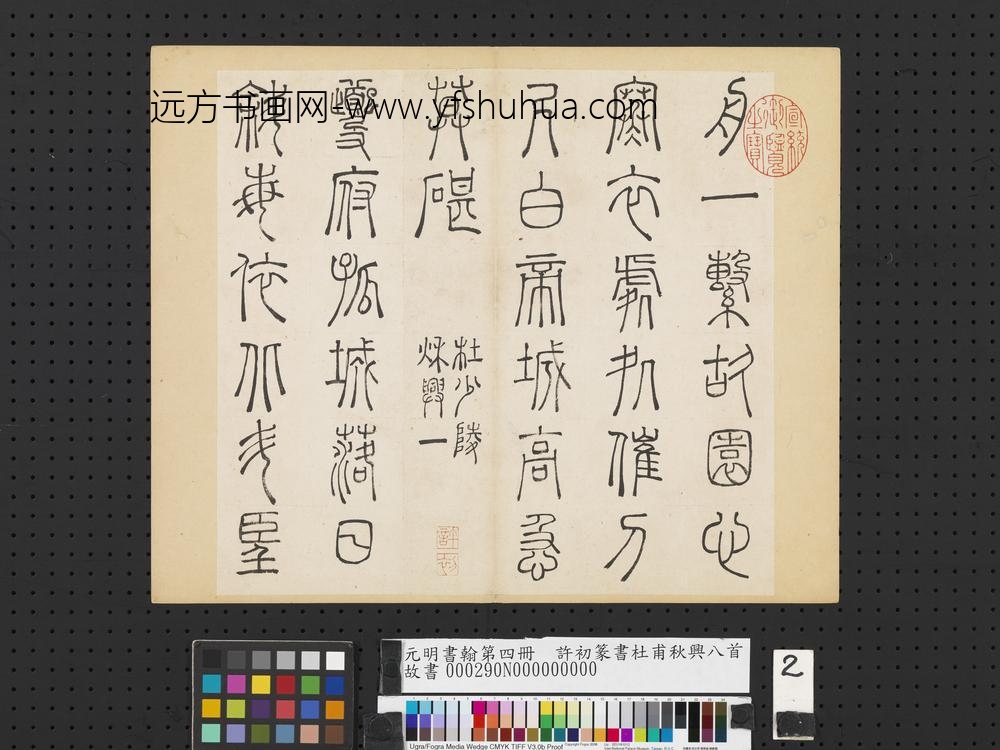 远方书画网-www.yfshuhua.com
宣統
御覽
之寶
舟一繫故園心
寒衣處處催刀
尺白帝城高急
莫碪
杜少陵
秌興一
許初
夔府孤城落日
斜每依北斗望
元明書翰第四冊　許初篆書杜甫秋興八首
故書 000290N000000000
2
Ugra/Fogra Media Wedge CMYK TIFF V3.0b Proof